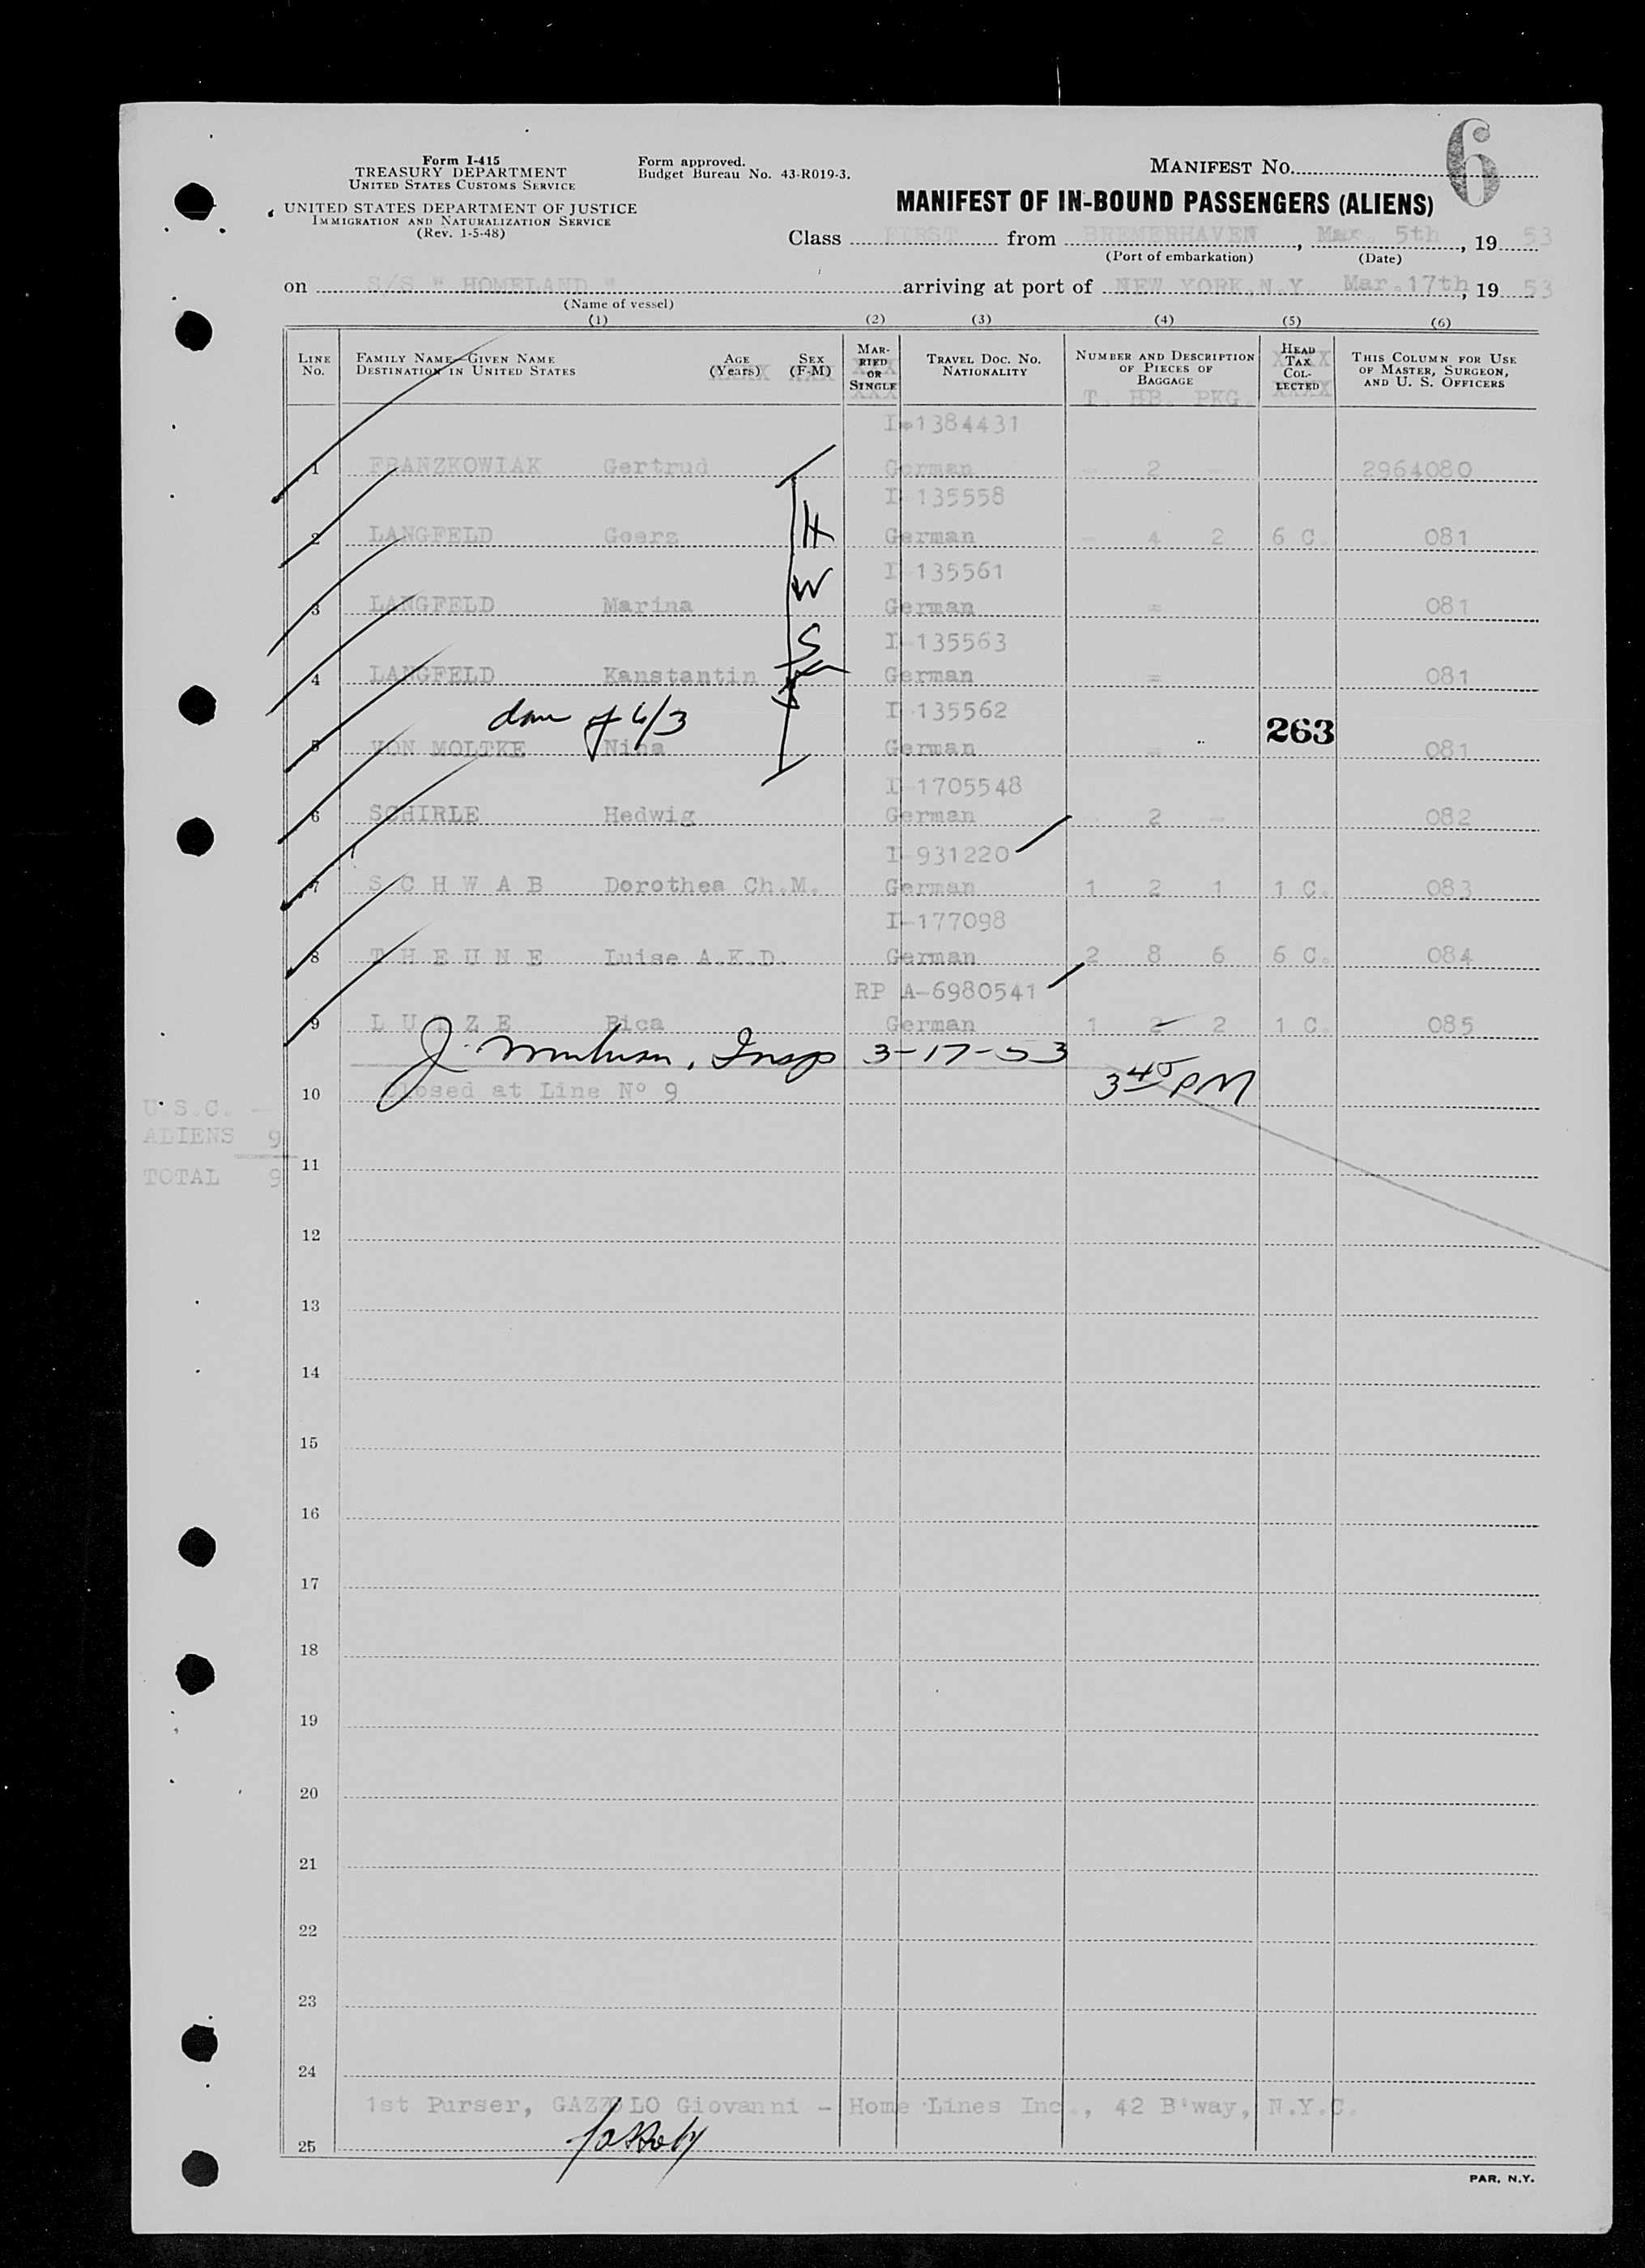 Form I-415
TREASURY DEPARTMENT
UNITED STATES CUSTOMS SERVICE
UNITED STATES DEPARTMENT OF JUSTICE
IMMIGRATION AND NATURALIZATION SERVICE
(Rev. 1-5-48)
Form approved.
Budget Bureau No. 43-R019-3.
MANIFEST No. 6
MANIFEST OF IN-BOUND PASSENGERS (ALIENS)
Class FIRST from BREMERHAVEN, Mar. 5th, 19 53
(Port of embarkation) (Date)
on S/S " HOMELAND " arriving at port of NEW YORK,N.Y. Mar.17th, 19 53
(Name of vessel)
(1) (2) (3) (4) (5) (6)
LINE No. FAMILY NAME—GIVEN NAME DESTINATION IN UNITED STATES AGE (Years) SEX (F-M) MARRIED OR SINGLE TRAVEL DOC. NO. NATIONALITY NUMBER AND DESCRIPTION OF PIECES OF BAGGAGE HEAD TAX COLLECTED THIS COLUMN FOR USE OF MASTER, SURGEON, AND U. S. OFFICERS
T. HB. PKG.
I-1384431
1 FRANZKOWIAK Gertrud German - 2 - 2964080
I-135558
2 LANGFELD Goerz H German - 4 2 6 C. 081
I-135561
3 LANGFELD Marina W German = 081
I-135563
4 LANGFELD Kanstantin S German = 081
dau of 4/3 I-135562
5 VON MOLTKE Nina German = 263 081
I-1705548
6 SCHIRLE Hedwig German - 2 - 082
I-931220
7 S C H W A B Dorothea Ch.M. German 1 2 1 1 C. 083
I-177098
8 T H E U N E Luise A.K.D. German 2 8 6 6 C. 084
RP A-6980541
9 L U T Z E Rica German 1 2 2 1 C. 085
J. Insp 3-17-53
10 Closed at Line No 9 3 45 PM
U.S.C. —
ALIENS 9
TOTAL 9
11
12
13
14
15
16
17
18
19
20
21
22
23
24
1st Purser, GAZZOLO Giovanni - Home Lines Inc., 42 B'way, N.Y.C.
25
PAR. N.Y.